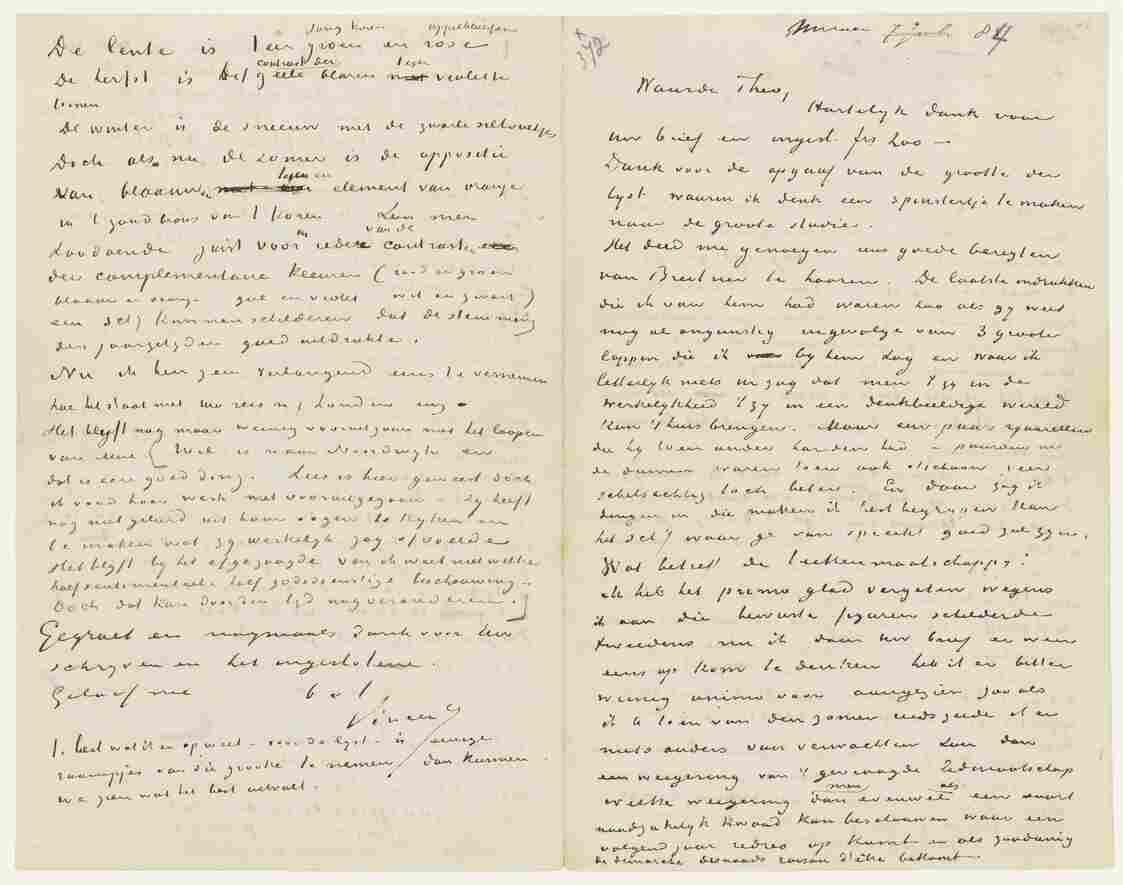 jong koren appelbloesem
De lente is teer groen en rose
contrast der tegen
De herfst is het gele blaren met violette
tonen
De winter is de sneeuw met de zwarte silhouetjes
Doch als nu de zomer is de oppositie
tegen een
van blaauwen element van oranje
in 't goud brons van 't koren Zou men
van de
zoodoende juist voor in ieder contrasten
der complementaire kleuren (rood en groen
blaauw en oranje geel en violet wit en zwart)
een schij kunnen schilderen dat de stemming
der jaargetyden goed uitdrukte.
Nu ik ben zeer verlangend eens te vernemen
hoe het staat met uw reis n/ Londen enz.
Het blyft nog maar weinig vooruitgaan met het loopen
van Moe [Wil is naar Noordwyk en
dat is een goed ding. Lies is hier geweest doch
ik vond haar werk niet vooruitgegaan – zy heeft
nog niet geleerd uit haar oogen te kyken en
te maken wat zy werkelyk zag of voelde
Het blyft by het afgezaagde van ik weet niet welke
half sentimenteele half godsdienstige beschouwing.
Doch dat kan door den tyd nog veranderen.]
Gegroet en nogmaals dank voor Uw
schryven en het ingeslotene.
Geloof me b à t
Vincent
't best wat ik er op weet – voor de lyst – is eenige
raampjes van die grootte te nemen dan kunnen
we zien wat het best uitvalt.
372
84
Waarde Theo,
Hartelyk dank voor
uw brief en ingesl. frs 200 –
Dank voor de opgaaf van de grootte der
lyst waarin ik denk een spinstertje te maken
naar de groote studies.
Het deed me genoegen eens goede berigten
van Breitner te hooren. De laatste indrukken
die ik van hem had waren zoo als gy weet
nog al ongunstig ingevolge van 3 groote
lappen die ik by hem zag en waar ik
letterlyk niets in zag dat men 't zy in de
werkelykheid 't zy in een denkbeeldige wereld
kan t'huis brengen. Maar een paar aquarellen
die hy toen onder handen had – paarden in
de duinen waren toen ook ofschoon zeer
schetsachtig toch beter. En daar zag ik
dingen in die maken ik best begrypen kan
het schij waar ge van spreekt goed zal zyn.
Wat betreft de teekenmaatschappij:
ik heb het primo glad vergeten wegens
ik aan die bewuste figuren schilderde
tweedens nu ik door Uw brief er weer
eens op kom te denken heb ik er bitter
weinig animo voor aangezien zoo als
ik U toen van den zomer reeds zeide ik er
niets anders van verwachten zou dan
een weigering van 't gevraagde Ledmaatschap
men als
welke weigering dan evenwel een soort
noodzakelyk kwaad kan beschouwen waar een
volgend jaar redres op komt en als zoodanig
de demarche desnoods raison d'être bekomt.